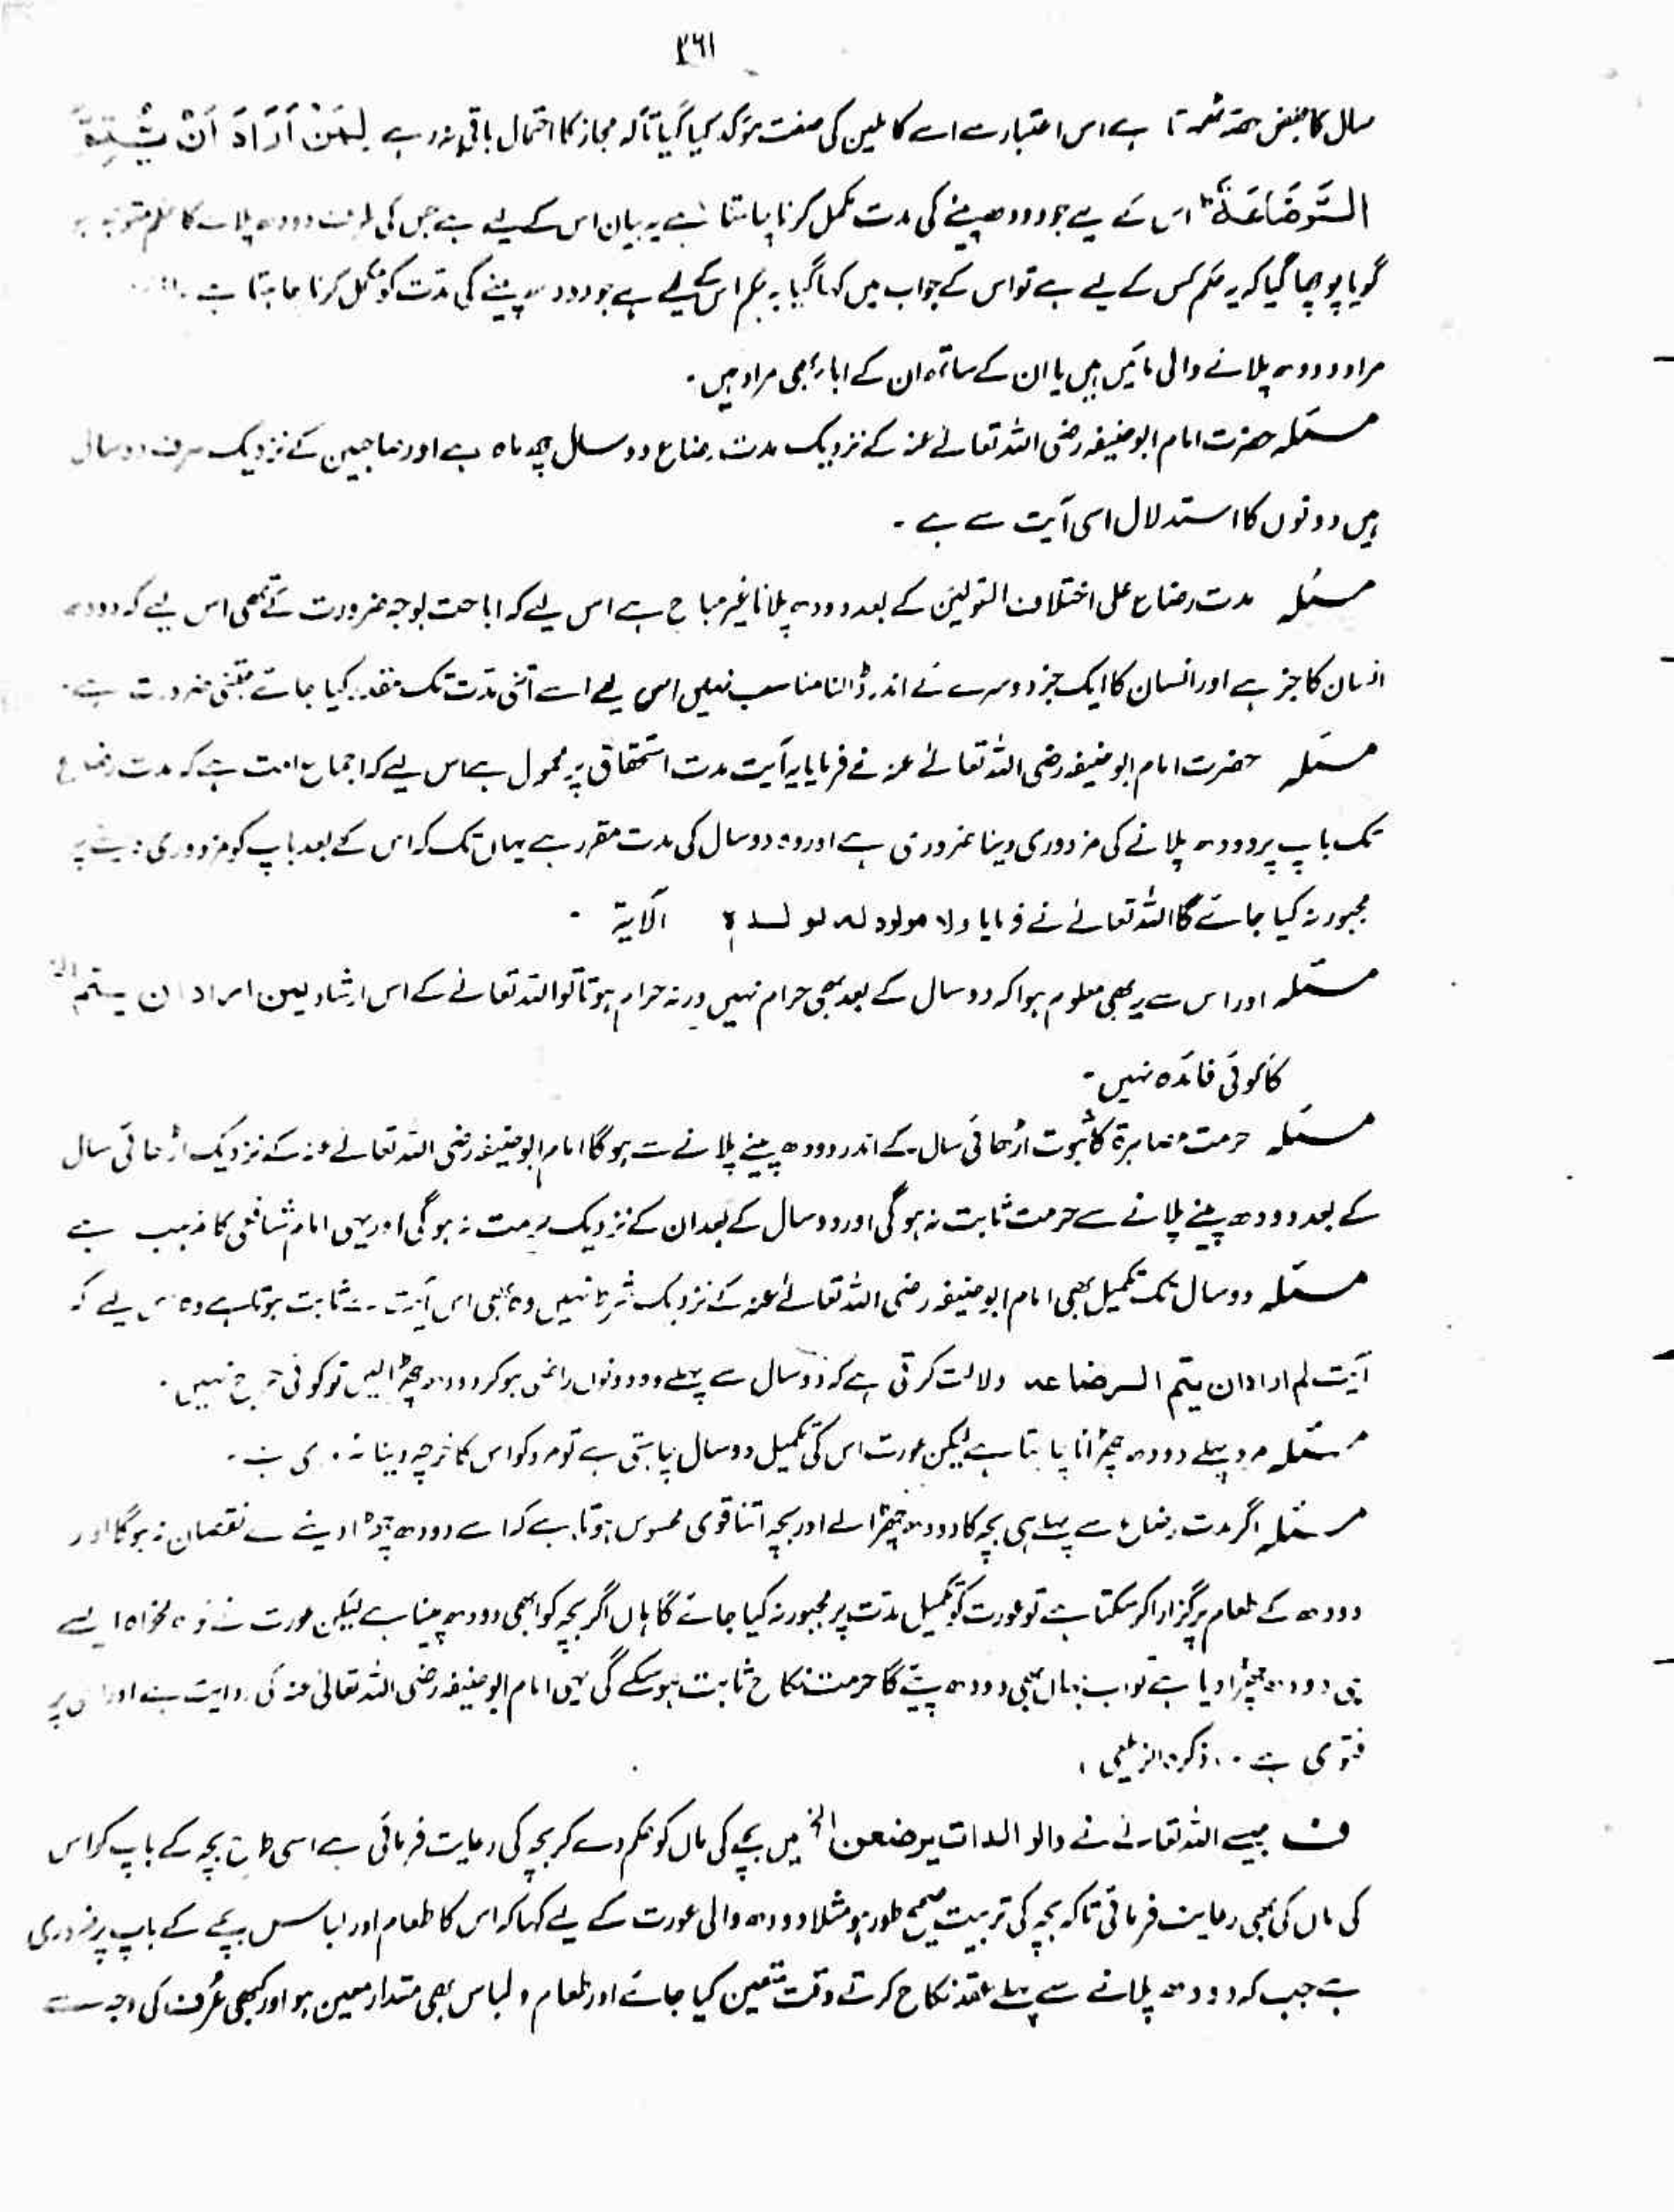 ٣٦١
سال کا بعض حصہ ہے اس اعتبار سے اسے کاملین کی صفت مؤکد کیا گیا تاکہ مجاز کا احتمال باقی نہ رہے لِمَنْ أَرَادَ أَنْ يُّتِمَّ
الرَّضَاعَةَ ط اس کے لیے جو دودھ پینے کی مدت مکمل کرنا چاہتا ہے یہ بیان اس کے لیے ہے جس کی طرف دودھ پلانے کا حکم متوجہ ہو
گویا پوچھا گیا کہ یہ حکم کس کے لیے ہے تو اس کے جواب میں کہا گیا یہ حکم اس کے لیے ہے جو دودھ پینے کی مدت کو مکمل کرنا چاہتا ہے
مراد دودھ پلانے والی مائیں ہیں یا ان کے ساتھ ان کے اباء بھی مراد ہیں۔
مسئلہ حضرت امام ابوحنیفہ رضی اللہ تعالےٰ عنہ کے نزدیک مدت رضاع دو سال چھ ماہ ہے اور صاحبین کے نزدیک صرف دو سال
ہیں دونوں کا استدلال اسی آیت سے ہے۔
مسئلہ مدت رضاع علی اختلاف القولین کے بعد دودھ پلانا غیر مباح ہے اس لیے کہ اباحت بوجہ ضرورت کے تھی اس لیے کہ دودھ
انسان کا جز ہے اور انسان کا ایک جز دوسرے کے اندر ڈالنا مناسب نہیں اس لیے اسے اتنی مدت تک مقدر کیا جائے جتنی ضرورت ہے۔
مسئلہ حضرت امام ابوحنیفہ رضی اللہ تعالےٰ عنہ نے فرمایا یہ آیت مدت استحقاق پر محمول ہے اس لیے کہ اجماع امت ہے کہ مدت رضاع
تک باپ پر دودھ پلانے کی مزدوری دینا ضروری ہے اور وہ دو سال کی مدت مقرر ہے یہاں تک کہ اس کے بعد باپ کو مزدوری دینے پر
مجبور نہ کیا جائے گا اللہ تعالےٰ نے فرمایا ولا مولود لہ بولدہ الآیۃ ۔
مسئلہ اور اس سے یہ بھی معلوم ہوا کہ دو سال کے بعد بھی حرام نہیں ورنہ حرام ہوتا تو اللہ تعالےٰ کے اس ارشاد لمن اراد ان یتم الخ
کا کوئی فائدہ نہیں۔
مسئلہ حرمت مصاہرۃ کا ثبوت اڑھائی سال کے اندر دودھ پینے پلانے سے ہوگا امام ابوحنیفہ رضی اللہ تعالےٰ عنہ کے نزدیک اڑھائی سال
کے بعد دودھ پینے پلانے سے حرمت ثابت نہ ہوگی اور دو سال کے بعد ان کے نزدیک حرمت نہ ہوگی اور یہی امام شافعی کا مذہب ہے
مسئلہ دو سال تک تکمیل بھی امام ابوحنیفہ رضی اللہ تعالےٰ عنہ کے نزدیک شرط نہیں وہ بھی اس آیت سے ثابت ہوتا ہے وہ اس لیے کہ
آیت لم اراد ان یتم الرضاعہ دلالت کرتی ہے کہ دو سال سے پہلے وہ دونوں راضی ہو کر دودھ چھڑا لیں تو کوئی حرج نہیں۔
مسئلہ مرد پہلے دودھ چھڑانا چاہتا ہے لیکن عورت اس کی تکمیل دو سال چاہتی ہے تو مرد کو اس کا خرچہ دینا
مسئلہ اگر مدت رضاع سے پہلے ہی بچہ کا دودھ چھڑا لے اور بچہ اتنا قوی محسوس ہوتا ہے کہ اسے دودھ چھڑا دینے سے نقصان نہ ہوگا اور
دودھ کے طعام پر گزارا کر سکتا ہے تو عورت کو تکمیل مدت پر مجبور نہ کیا جائے گا ہاں اگر بچہ کو ابھی دودھ پینا ہے لیکن عورت نے خواہ مخواہ ایسے
ہی دودھ چھڑا دیا ہے تو اب جہاں بھی دودھ پئے گا حرمت نکاح ثابت ہو سکے گی یہی امام ابوحنیفہ رضی اللہ تعالیٰ عنہ کی روایت ہے اور اس پر
فتویٰ ہے۔ ذکرہ الزیلعی ،
ف جیسے اللہ تعالےٰ نے والوالدات یرضعن الخ میں بچے کی ماں کو حکم دے کر بچہ کی رعایت فرمائی ہے اسی طرح بچہ کے باپ کو اس
کی ماں کی بھی رعایت فرمائی تاکہ بچہ کی تربیت صحیح طور ہو مثلا دودھ والی عورت کے لیے کہا کہ اس کا طعام اور لباس بچے کے باپ پر ضروری
ہے جب کہ دودھ پلانے سے پہلے عقد نکاح کرتے وقت متعین کیا جائے اور طعام و لباس بھی مقدار معین ہو اور کبھی عُرف کی وجہ سے